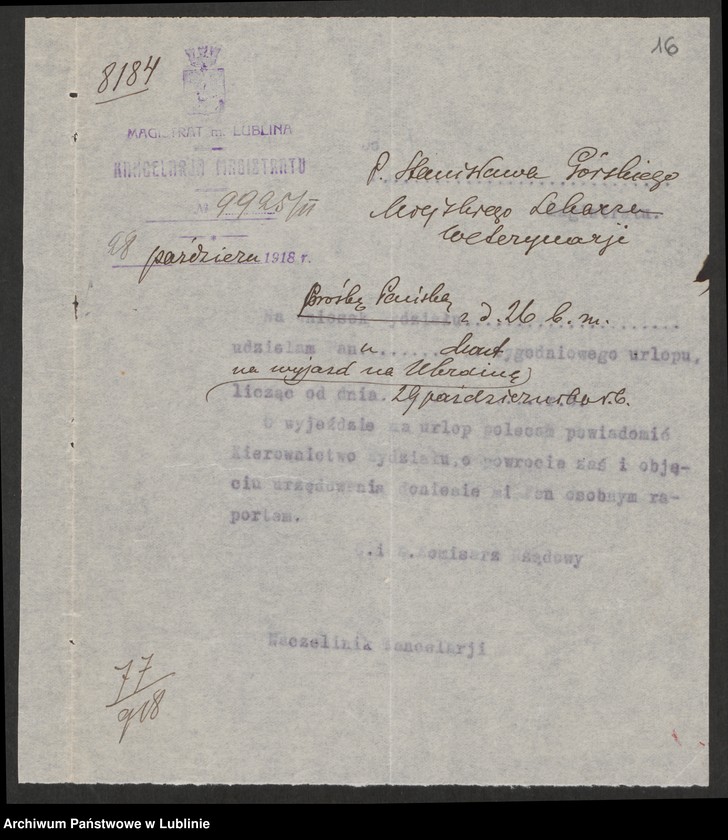 16
8184
MAGISTRAT m. LUBLINA
KANCELARJA MAGISTRATU
№ 9925/II
28 październ 1918 r.
P. Stanisława Górskiego
Miejskiego Lekarza
Weterynarji
Prośbę Pańską
Na wniosek Wydziału z d. 26 b. m.
udzielam Panu tygodniowego urlopu,
na wyjazd na Ukrainę
licząc od dnia 29 października r.b.
O wyjeździe na urlop polecam powiadomić
Kierownictwo Wydziału, o powrocie zaś i obję-
ciu urzędowania doniesie mi Pan osobnym ra-
portem.
Komisarz Rządowy
Naczelnik Kancelarji
77/918
Archiwum Państwowe w Lublinie